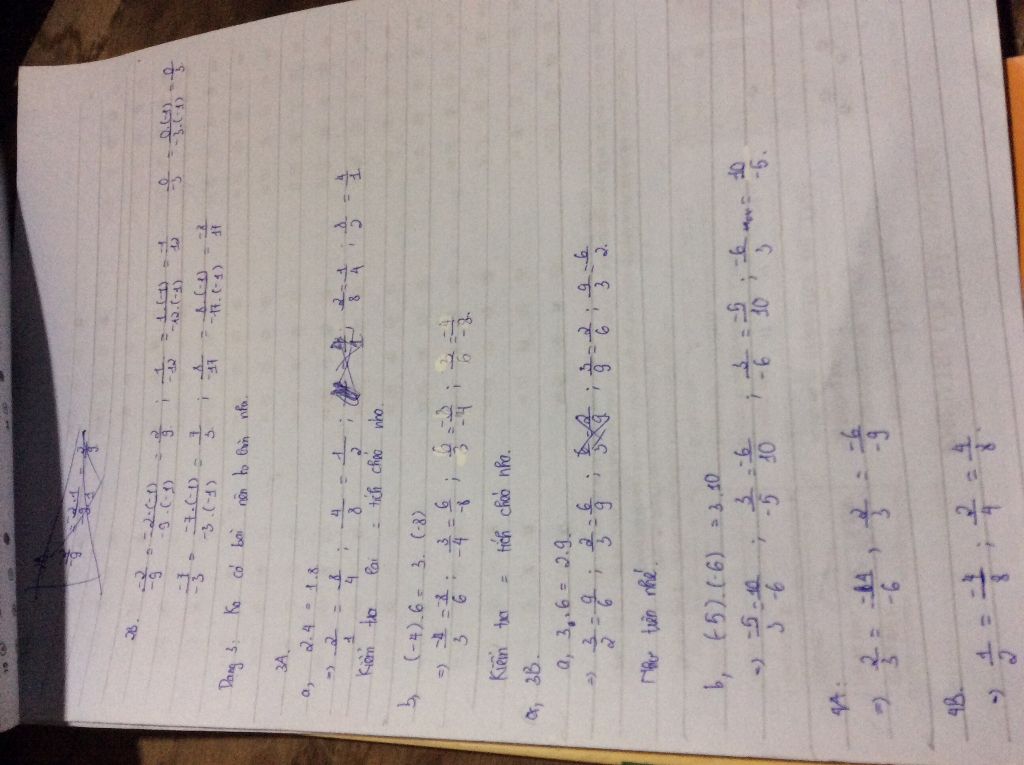 2B.
-2/-9 = -2.(-1)/-9.(-1) = 2/9 ; 1/-12 = 1.(-1)/-12.(-1) = -1/12 0/-3 = 0.(-1)/-3.(-1) = 0/3
-7/-3 = -7.(-1)/-3.(-1) = 7/3 ; 8/-17 = 8.(-1)/-17.(-1) = -8/17
Dạng 3: Ko có bài nên ko lm nha.
3A.
a, 2.4 = 1.8
=) 2/1 = 8/4 ; 4/8 = 1/2 ; 2/8 = 1/4 ; 8/2 = 4/1
Kiểm tra lại = tích chéo nha.
b, (-4).6 = 3.(-8)
=) -4/3 = -8/6 ; 3/-4 = 6/-8 ; 6/3 = -8/-4 ; 3/6 = -4/-8.
Kiểm tra = tích chéo nha.
3B.
a, 3.6 = 2.9
=) 3/2 = 9/6 ; 2/3 = 6/9 ; 3/9 = 2/6 ; 9/3 = 6/2.
Như trên nhé.
b, (-5).(-6) = 3.10
=) -5/3 = 10/-6 ; 3/-5 = -6/10 ; 3/-6 = -5/10 ; -6/3 = 10/-5.
4A:
=) 2/3 = -4/-6 , 2/3 = -6/-9
4B.
=) 1/2 = 4/8 ; 2/4 = 4/8.